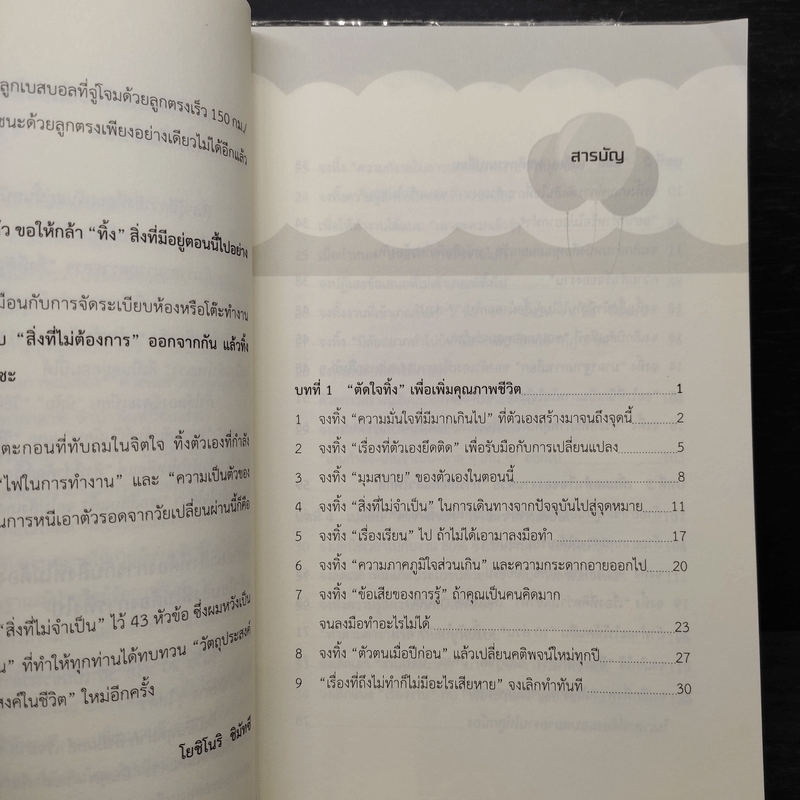 ลูกเบสบอลที่จู่โจมด้วยลูกตรงเร็ว 150 กม./
ชนะด้วยลูกตรงเพียงอย่างเดียวไม่ได้อีกแล้ว
ขอให้กล้า “ทิ้ง” สิ่งที่มีอยู่ตอนนี้ไปอย่าง
มือนกับการจัดระเบียบห้องหรือโต๊ะทำงาน
“สิ่งที่ไม่ต้องการ” ออกจากกัน แล้วทิ้ง
ซะ
ตะกอนที่ทับถมในจิตใจ ทิ้งตัวเองที่กำลัง
“ไฟในการทำงาน” และ “ความเป็นตัวของ
นการหนีเอาตัวรอดจากวัยเปลี่ยนผ่านนี้ก็คือ
“สิ่งที่ไม่จำเป็น” ไว้ 43 หัวข้อ ซึ่งผมหวังเป็น
น” ที่ทำให้ทุกท่านได้ทบทวน “วัตถุประสงค์
งค์ในชีวิต” ใหม่อีกครั้ง
โยชิโนริ ชิมัทซึ
สารบัญ
บทที่ 1 “ตัดใจทิ้ง” เพื่อเพิ่มคุณภาพชีวิต 1
1 จงทิ้ง “ความมั่นใจที่มีมากเกินไป” ที่ตัวเองสร้างมาจนถึงจุดนี้ 2
2 จงทิ้ง “เรื่องที่ตัวเองยึดติด” เพื่อรับมือกับการเปลี่ยนแปลง 5
3 จงทิ้ง “มุมสบาย” ของตัวเองในตอนนี้ 8
4 จงทิ้ง “สิ่งที่ไม่จำเป็น” ในการเดินทางจากปัจจุบันไปสู่จุดหมาย 11
5 จงทิ้ง “เรื่องเรียน” ไป ถ้าไม่ได้เอามาลงมือทำ 17
6 จงทิ้ง “ความภาคภูมิใจส่วนเกิน” และความกระดากอายออกไป 20
7 จงทิ้ง “ข้อเสียของการรู้” ถ้าคุณเป็นคนคิดมาก
จนลงมือทำอะไรไม่ได้ 23
8 จงทิ้ง “ตัวตนเมื่อปีก่อน” แล้วเปลี่ยนคติพจน์ใหม่ทุกปี 27
9 “เรื่องที่ถึงไม่ทำก็ไม่มีอะไรเสียหาย” จงเลิกทำทันที 30